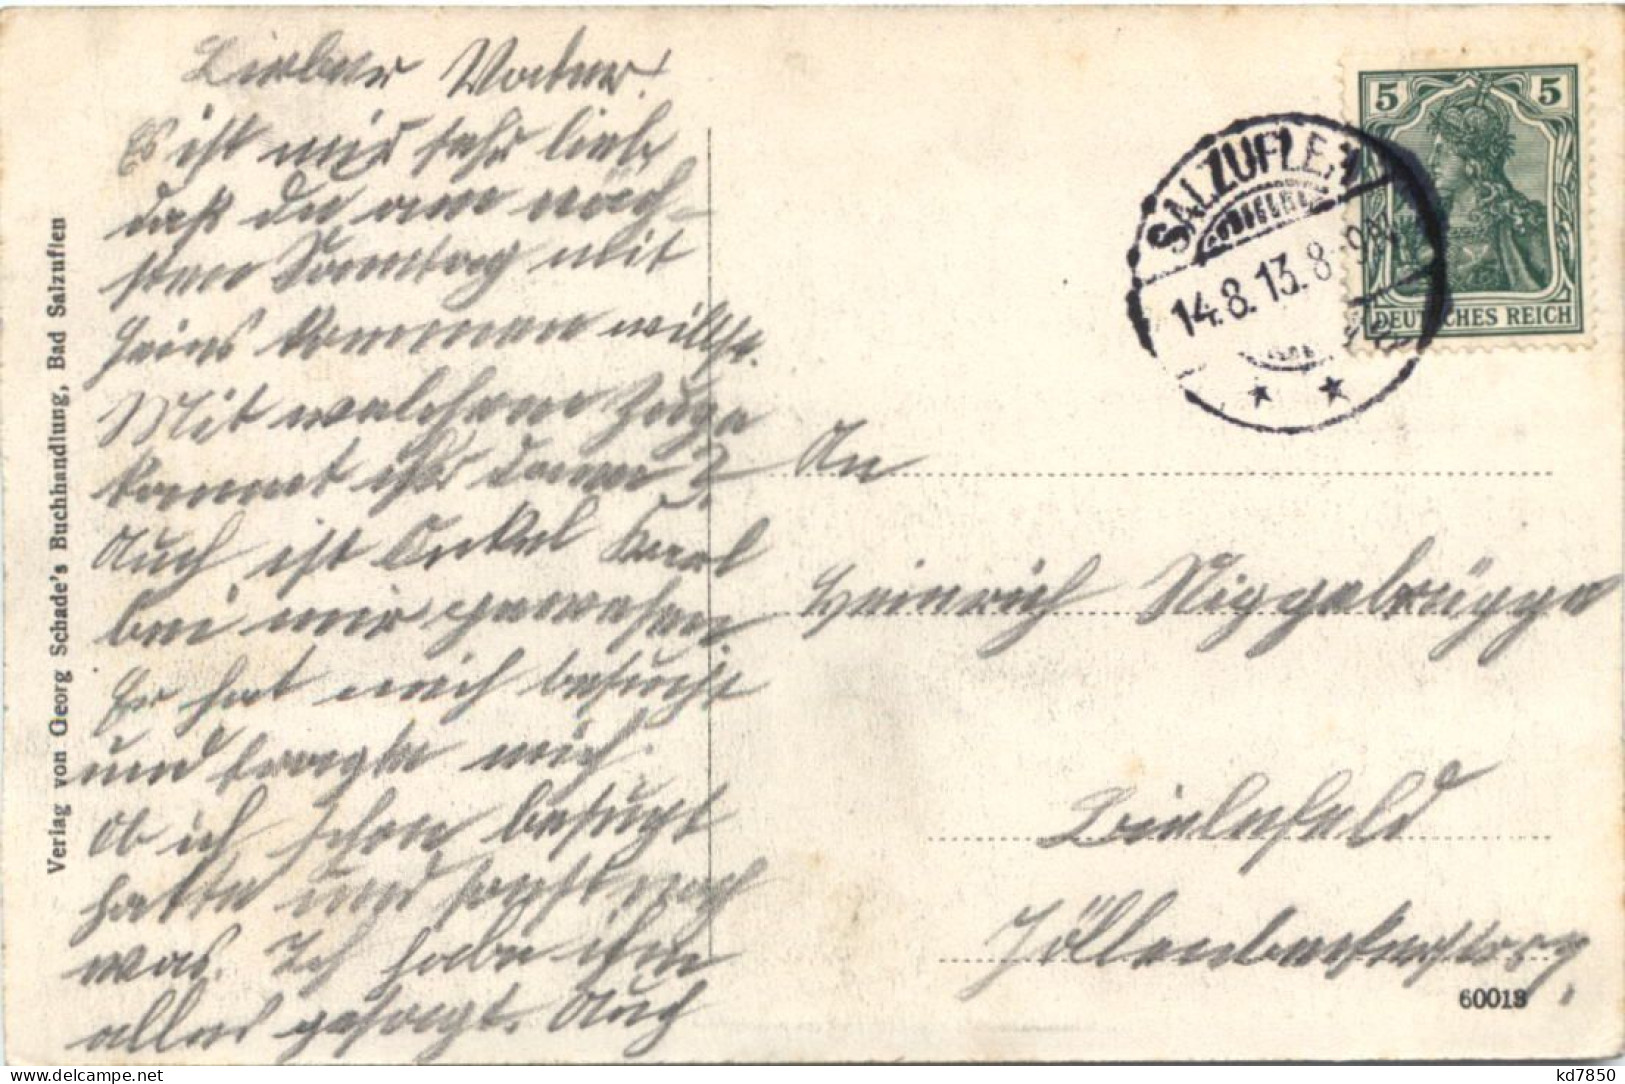 Lieber Vater!
Es ist mir sehr lieb,
daß du am näch-
sten Sonntag mit
Heins kommen willst.
Mit welchem Zuge
kommt ihr dann?
Auch ist Onkel Karl
bei mir gewesen.
Er hat mich besucht
und fragte mich
Ob ich schon besugt
hatte und sonst noch
was. Ich habe ihm
alles gesagt. Auch
Verlag von Georg Schade's Buchhandlung, Bad Salzuflen
5 5
DEUTSCHES REICH
SALZUFLEN
14.8.13. 8-9N
An
Heinrich Niggebrügge
Bielefeld
Jöllenbeckerstr
60013
kd7850